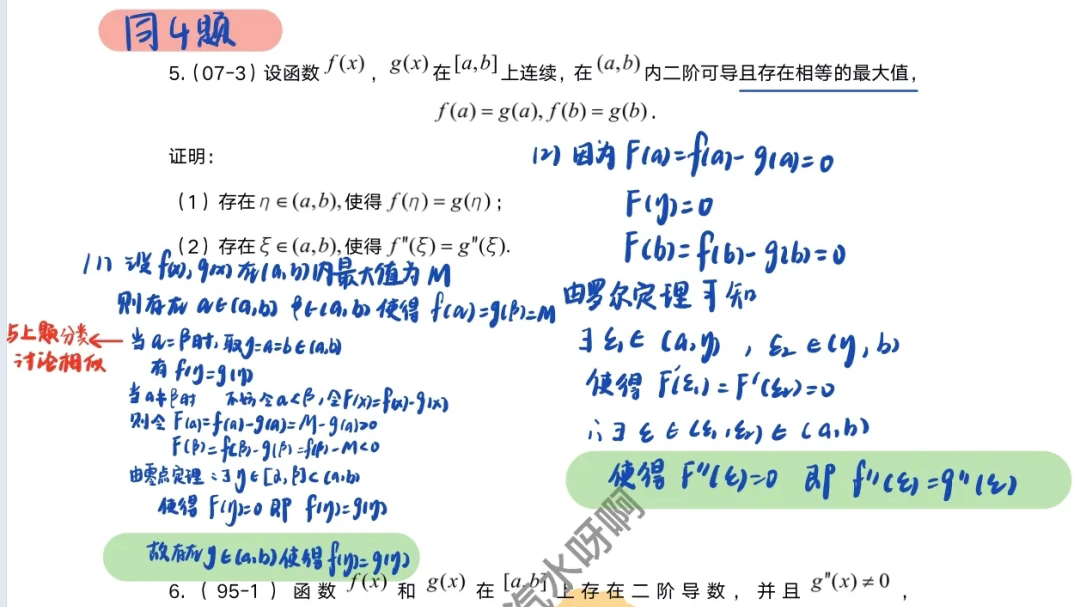 同4题
5.(07-3)设函数 f(x), g(x)在[a,b]上连续,在(a,b)内二阶可导且存在相等的最大值,
f(a)=g(a),f(b)=g(b).
证明:
(1)存在η∈(a,b),使得 f(η)=g(η);
(2)存在ξ∈(a,b),使得 f"(ξ)=g"(ξ).
(1) 设f(x),g(x)在(a,b)内最大值为M
则存在 α∈(a,b) β∈(a,b) 使得 f(α)=g(β)=M
与上题分类
讨论相似
当α=β时,取η=α=b∈(a,b)
有 f(η)=g(η)
当α≠β时 不妨令α<β,令F(x)=f(x)-g(x)
则令 F(α)=f(α)-g(α)=M-g(α)>0
F(β)=f(β)-g(β)=f(β)-M<0
由零点定理:∃η∈[α,β]⊂(a,b)
使得 F(η)=0 即 f(η)=g(η)
故存在η∈(a,b)使得f(η)=g(η)
(2) 因为F(a)=f(a)-g(a)=0
F(η)=0
F(b)=f(b)-g(b)=0
由罗尔定理可知
∃ξ₁∈(a,η),ξ₂∈(η,b)
使得 F'(ξ₁)=F'(ξ₂)=0
∴∃ξ∈(ξ₁,ξ₂)∈(a,b)
使得 F''(ξ)=0 即 f''(ξ)=g''(ξ)
汽水呀啊
6.(95-1)函数 f(x) 和 g(x) 在 [a,b] 上存在二阶导数,并且 g"(x)≠0,